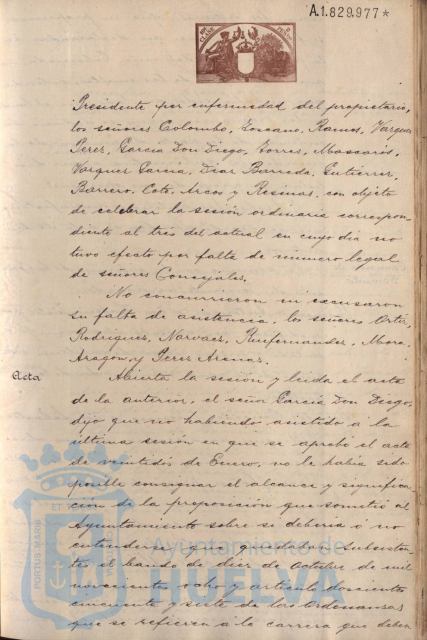 A.1.829.977*
Presidente por enfermedad del propietario,
los señores Colombo, Toscano, Ramos, Vazquez
Perez, García Don Diego, Torres, Mascarós,
Vazquez García, Diaz Barreda, Gutiérrez,
Borrero, Coto, Arcos y Resinas, con objeto
de celebrar la sesión ordinaria correspon-
diente al tres del actual en cuyo día no
tuvo efecto por falta de número legal
de señores Concejales.
No concurrieron ni excusaron
su falta de asistencia, los señores Ortiz,
Rodriguez, Narvaez, Ruifernandez, Mora,
Aragón, y Perez Arenas.
Acta
Abierta la sesión y leida el acta
de la anterior, el señor García Don Diego,
dijo que no habiendo asistido á la
última sesión en que se aprobó el acta
de veintidos de Enero, no le había sido
posible consignar el alcance y significa-
ción de la proposición que sometió al
Ayuntamiento sobre si debería ó no
entenderse que quedaban subsisten-
tes el bando de diez de Octubre de mil
novecientos ocho y artículo doscientos
cincuenta y siete de las Ordenanzas
que se refieren á la carrera que deben
PORTUS MARIS
Ayuntamiento de
HUELVA